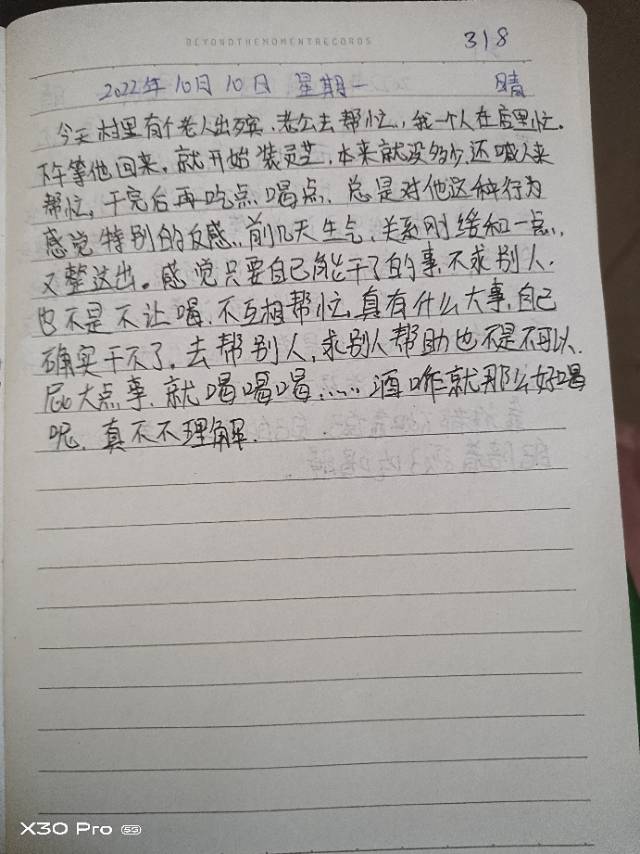 BEYONDTHEMOMENTRECORDS
318
2022年10月10日 星期一 晴
今天村里有个老人出殡,老公去帮忙,我一个人在店里忙。
下午等他回来,就开始装灵芝,本来就没多少,还喊人来
帮忙,干完后再吃点喝点,总是对他这种行为
感觉特别的反感,前几天生气,关系刚缓和一点,
又整这出。感觉只要自己能干了的事,不求别人,
也不是不让喝,不互相帮忙,真有什么大事,自己
确实干不了,去帮别人,求别人帮助也不是不可以,
屁大点事,就喝喝喝……酒咋就那么好喝
呢,真不不理解.
X30 Pro 5G